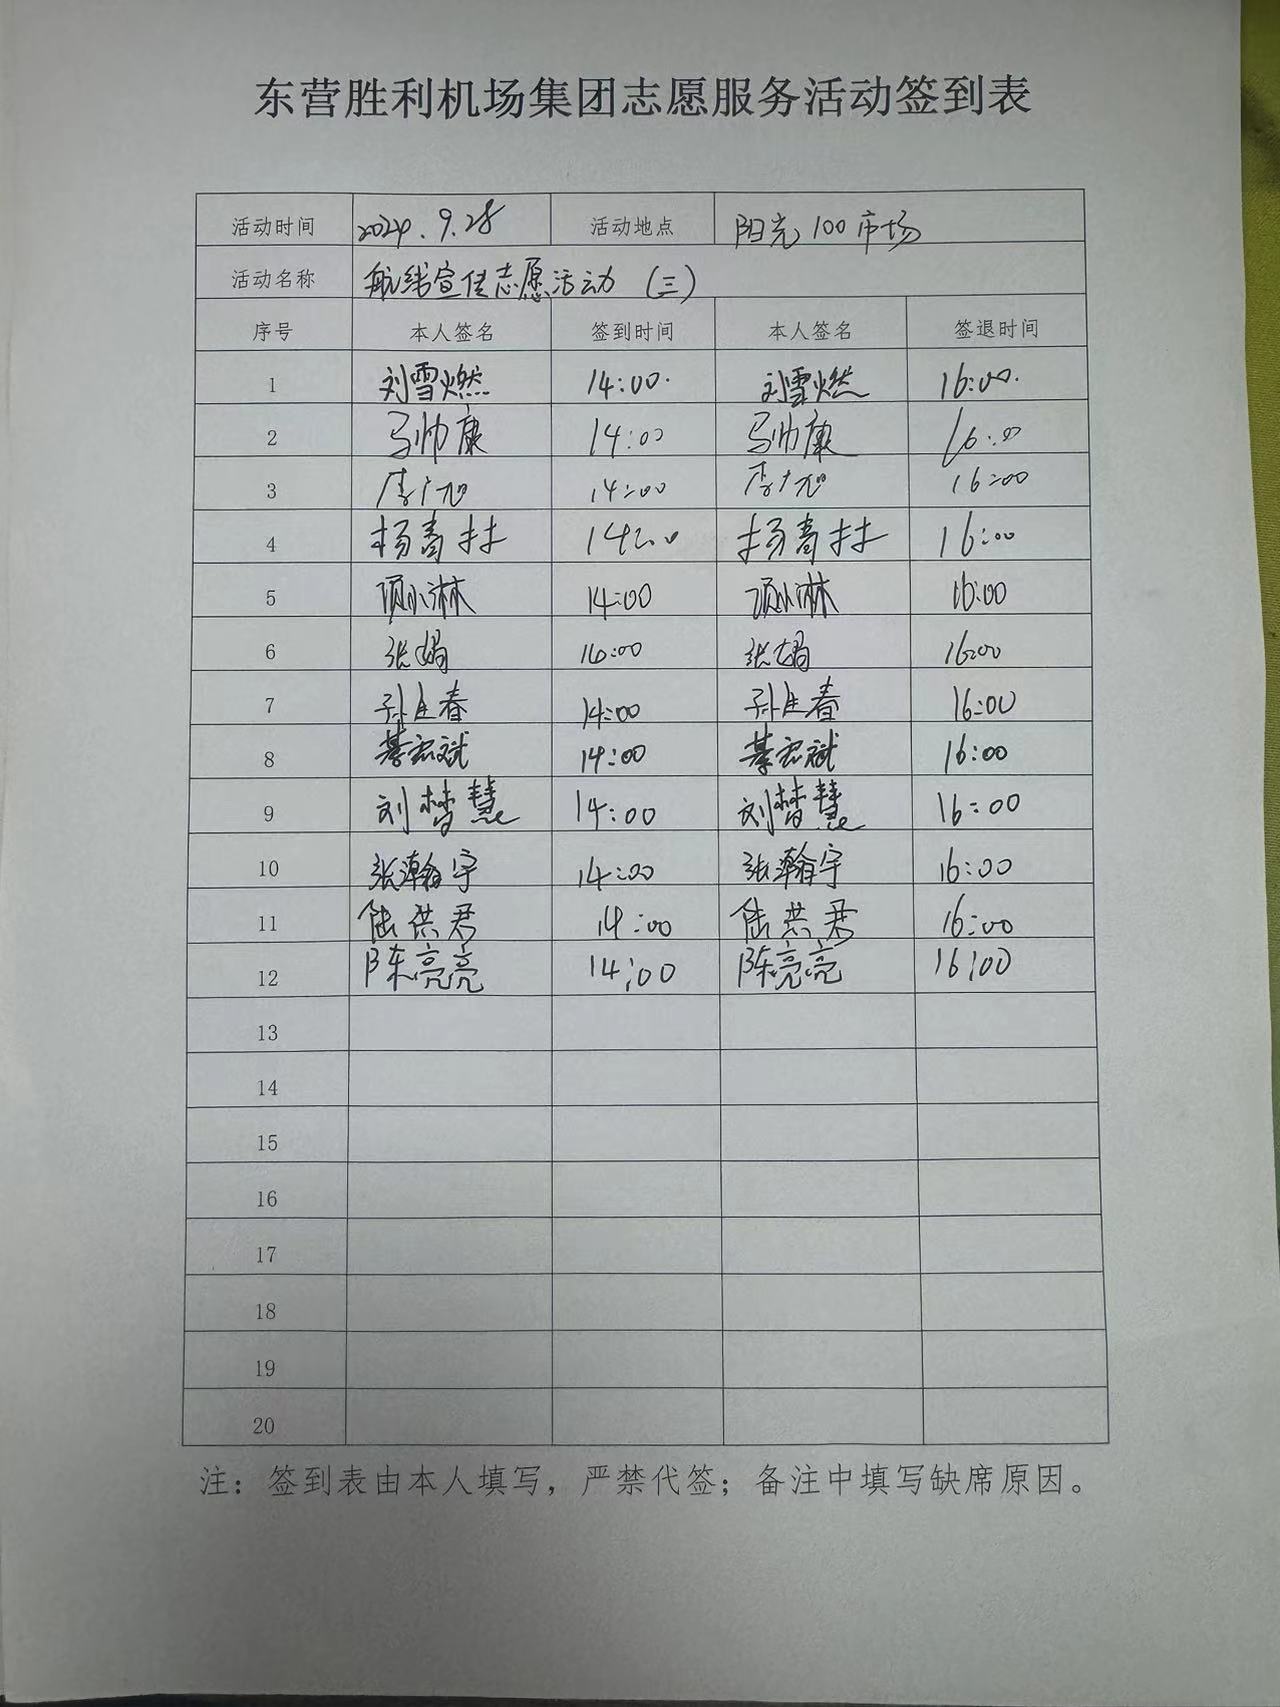 东营胜利机场集团志愿服务活动签到表
活动时间 2024.9.28 活动地点 阳光100市场
活动名称 航线宣传志愿活动（三）
序号 本人签名 签到时间 本人签名 签退时间
1 刘雪燃 14:00. 刘雪燃 16:00.
2 马帅康 14:00 马帅康 16:00
3 李广旭 14:00 李广旭 16:00
4 杨青林 14:00 杨青林 16:00
5 项小淋 14:00 项小淋 16:00
6 张娟 16:00 张娟 16:00
7 孙建春 14:00 孙建春 16:00
8 綦宏斌 14:00 綦宏斌 16:00
9 刘梦慧 14:00 刘梦慧 16:00
10 张瀚宇 14:00 张瀚宇 16:00
11 陆洪君 14:00 陆洪君 16:00
12 陈亮亮 14:00 陈亮亮 16:00
13
14
15
16
17
18
19
20
注：签到表由本人填写，严禁代签；备注中填写缺席原因。